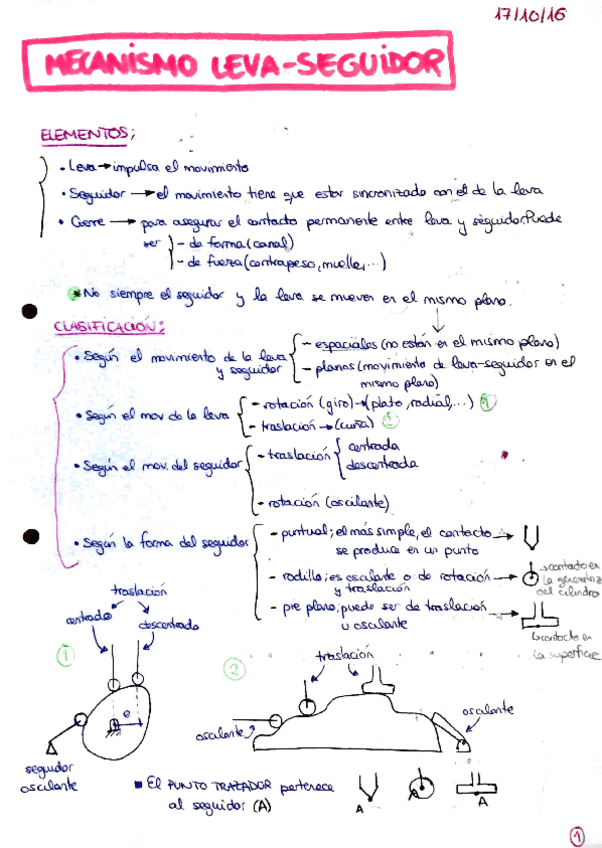 17/10/16
MECANISMO LEVA-SEGUIDOR
ELEMENTOS:
• Leva → impulsa el movimiento
• Seguidor → el movimiento tiene que estar sincronizado con el de la leva
• Cierre → para asegurar el contacto permanente entre leva y seguidor. Puede
ser - de forma (canal)
- de fuerza (contrapeso, muelle, ...)
* No siempre el seguidor y la leva se mueven en el mismo plano.
CLASIFICACIÓN:
• Según el movimiento de la leva y seguidor
- espaciales (no están en el mismo plano)
- planos (movimiento de leva-seguidor en el
mismo plano)
• Según el mov de la leva
- rotación (giro) → (plato, radial, ...) 1
- traslación → (cuña) 2
• Según el mov. del seguidor
- traslación
centrada
descentrada
- rotación (oscilante)
• Según la forma del seguidor
- puntual; el más simple, el contacto →
se produce en un punto
- rodillo; es oscilante o de rotación →
y traslación
→ contacto en
la generatriz
del cilindro
- pie plano; puede ser de traslación →
u oscilante
↳ contacto en
la superficie
traslación
centrado
descentrado
1
e
seguidor
oscilante
2
traslación
oscilante
oscilante
■ El PUNTO TRAZADOR pertenece
al seguidor (A)
A
A
A
1